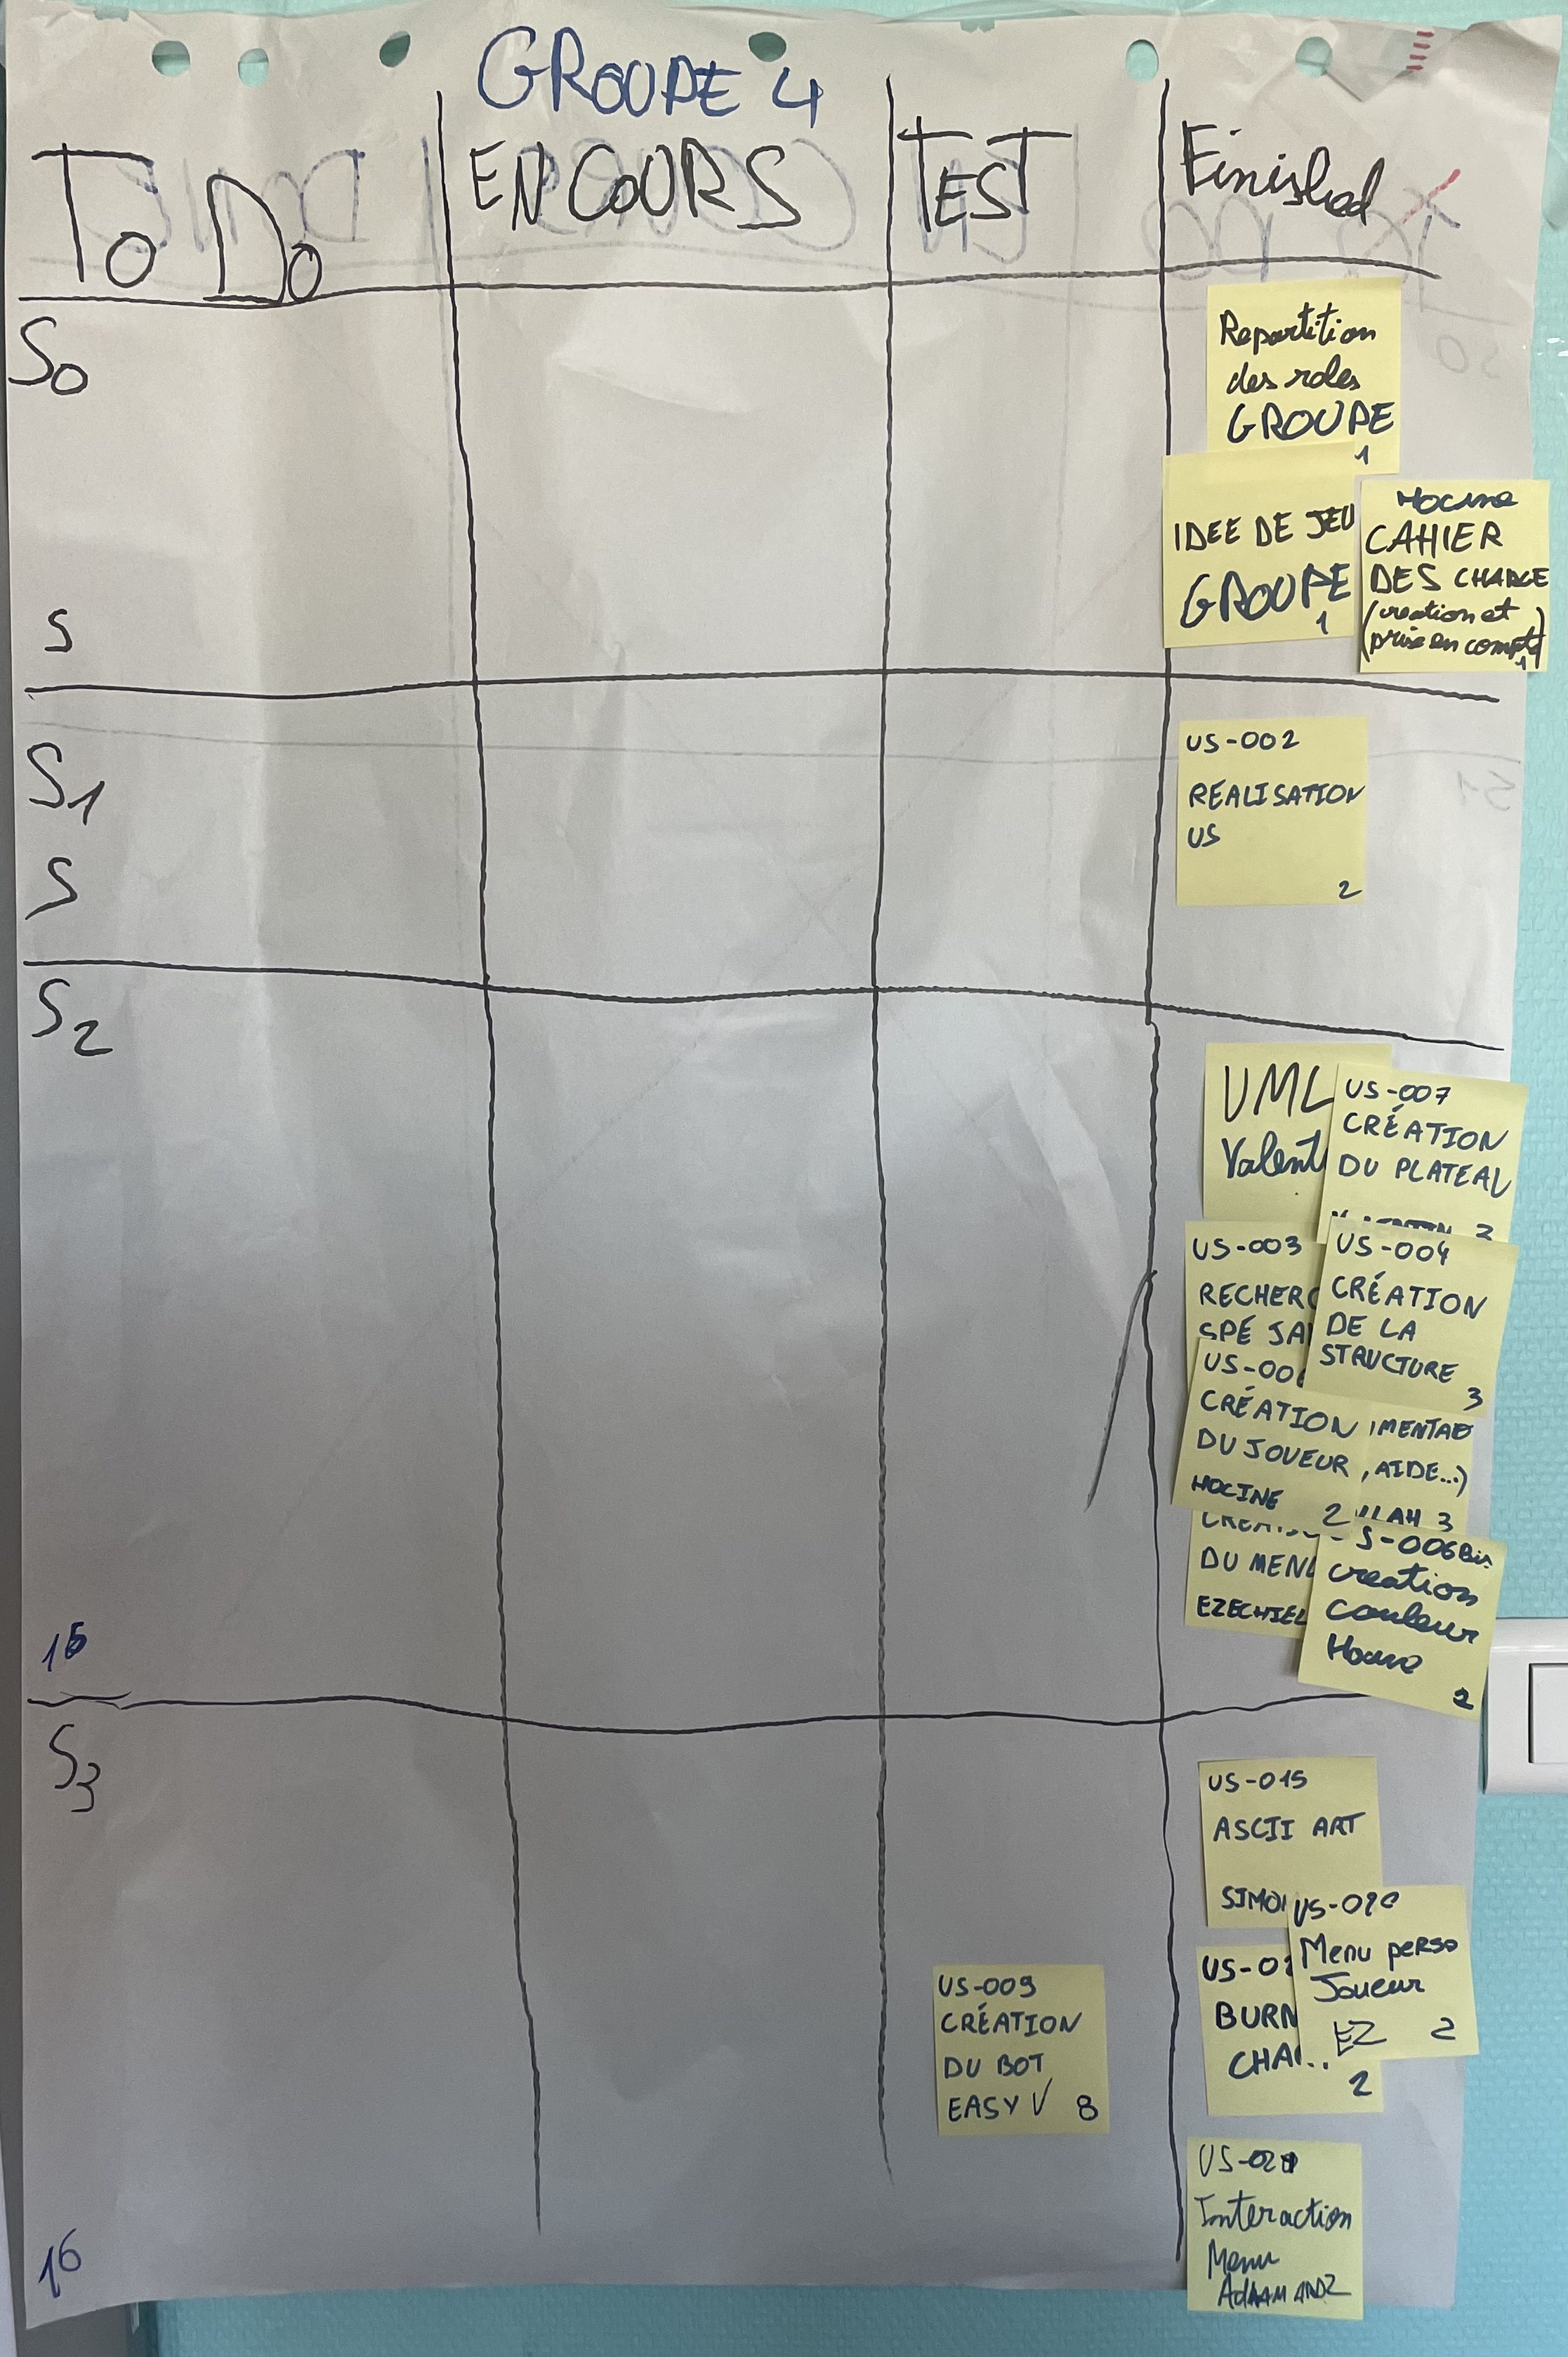 GROUPE 4
To Do
EN COURS
TEST
Finished
S0
Repartition
des roles
GROUPE
1
IDEE DE JEU
GROUPE
1
Hocine
CAHIER
DES CHARGE
(creation et
prise en compte)
1
S
S1
US-002
REALISATION
US
2
S
S2
UML
Valent
US-007
CRÉATION
DU PLATEAU
3
US-003
RECHERC
SPÉ JA
US-004
CRÉATION
DE LA
STRUCTURE
3
US-006
CRÉATION
DU JOUEUR
HOCINE 2
MENTAE
, AIDE...)
LLAH 3
DU MENU
EZECHIEL
S-006Bis
creation
couleur
Hocine
2
15
S3
US-015
ASCII ART
SIMO
US-020
Menu perso
Joueur
EZ 2
US-02
BURN
CHA
2
US-009
CRÉATION
DU BOT
EASY √ 8
US-021
Interaction
Menu
16